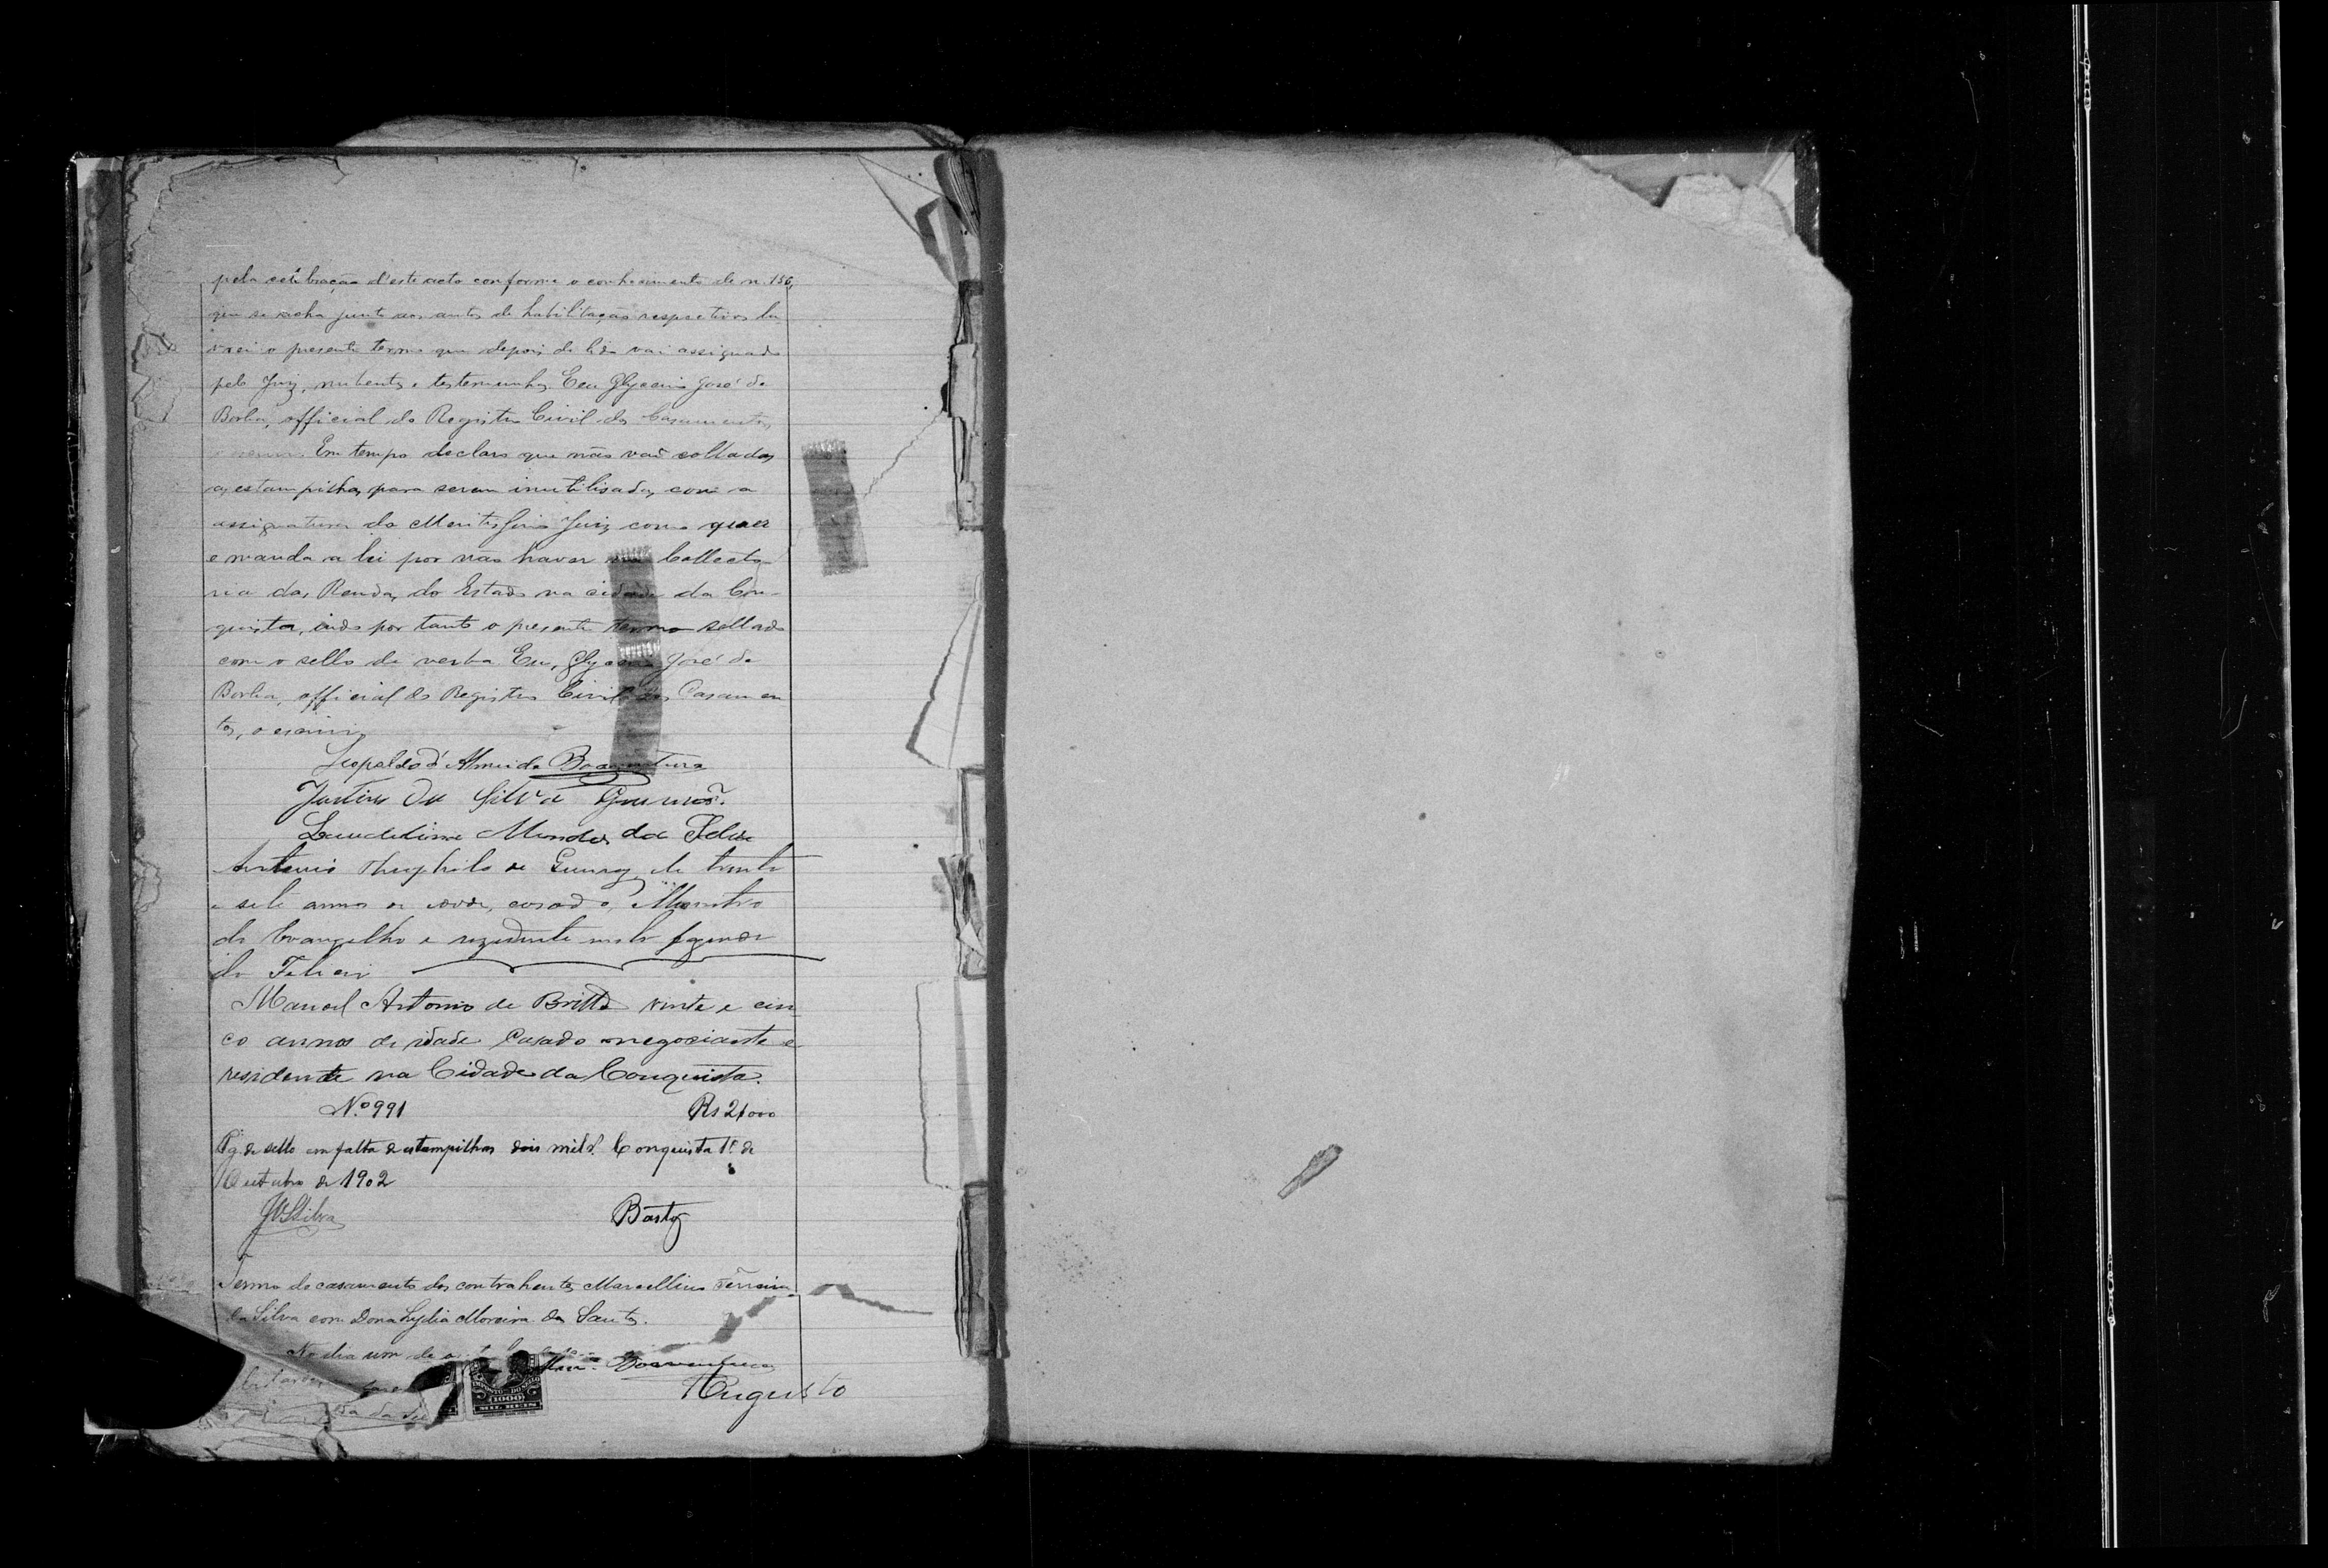 pela celebração d'este acto conforme o conhecimento de n. 156,
que se acha junto aos autos de habilitação respectivos la
vrei o presente termo que depois de lido vai assignado
pelo Juiz, nubentes e testemunhas. Eu Glycerio José de
Borba, official do Registro Civil dos Casamentos,
Em tempo declaro que não vão collados
as estampilhas para serem inutilisadas com a
assignatura do Meritissimo Juiz como quer
e manda a lei por não haver na Collecto
ria das Rendas do Estado na cidade da Con-
quista, indo por tanto o presente termo sellado
com o sello de verba Eu, Glycerio José de
Borba, official do Registro Civil dos Casamen
tos, o escrivi
Leopoldo d'Almeida Boaventura
Justino da Silva Gusmão.
Laudelina Mendes da Silva
Antonio Theophilo de Queiroz, de trinta
e sete annos de idade, casado, Ministro
do Evangelho e rezidente nesta fazenda
do
Manoel Antonio de Britto vinte e cin
co annos de idade Casado negociante e
residente na Cidade da Conquista.
N.º 991 Rs 2$000
Pg. de sello em falta de estampilhas dois mil rs. Conquista 1º de
Outubro de 1902
JVSilva Bastos
Termo de casamento dos contrahentes Marcellino Ferreira
da Silva com Dona Lydia Moreira dos Santos.
No dia um de
Boaventura
Augusto
IMPOSTO DO SELLO
(1000)
MIL REIS